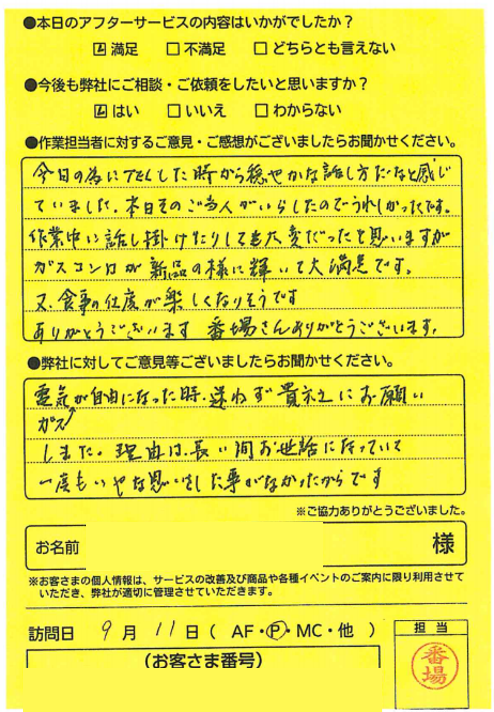 ●本日のアフターサービスの内容はいかがでしたか？
☑ 満足 □ 不満足 □ どちらとも言えない
●今後も弊社にご相談・ご依頼をしたいと思いますか？
☑ はい □ いいえ □ わからない
●作業担当者に対するご意見・ご感想がございましたらお聞かせください。
今日の為にTELした時から穏やかな話し方だなと感じ
ていました。本日そのご当人がいらしたのでうれしかったです。
作業中に話し掛けたりしても大変だったと思いますが
ガスコンロが新品の様に輝いて大満足です。
又、食事の仕度が楽しくなりそうです
ありがとうございます 番場さんありがとうございます。
●弊社に対してご意見等ございましたらお聞かせください。
電気が自由になった時、迷わず貴社にお願い
ガス
しました。理由は、長い間お世話になっていて
一度もいやな思いをした事がなかったからです
※ご協力ありがとうございました。
お名前 様
※お客さまの個人情報は、サービスの改善及び商品や各種イベントのご案内に限り利用させて
いただき、弊社が適切に管理させていただきます。
訪問日 9月 11日（ AF・Ⓟ・MC・他 ）
担当
番場
（お客さま番号）